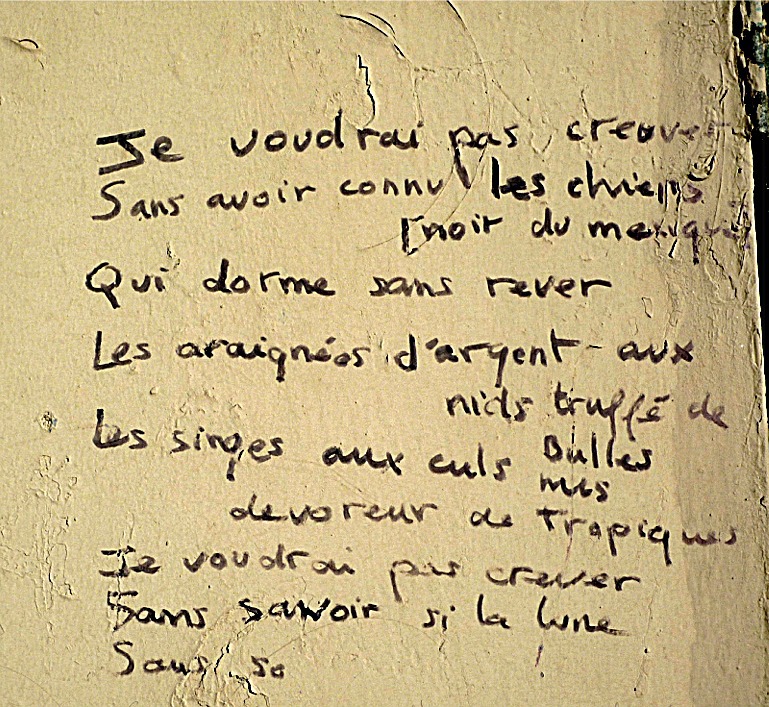 Je voudrai pas crever
Sans avoir connu les chiens
[noir du mexique
Qui dorme sans rever
Les araignées d'argent aux
nids truffé de
Bulles
Les singes aux culs nus
devoreur de Tropiques
Je voudrai pas crever
Sans savoir si la lune
Sous so